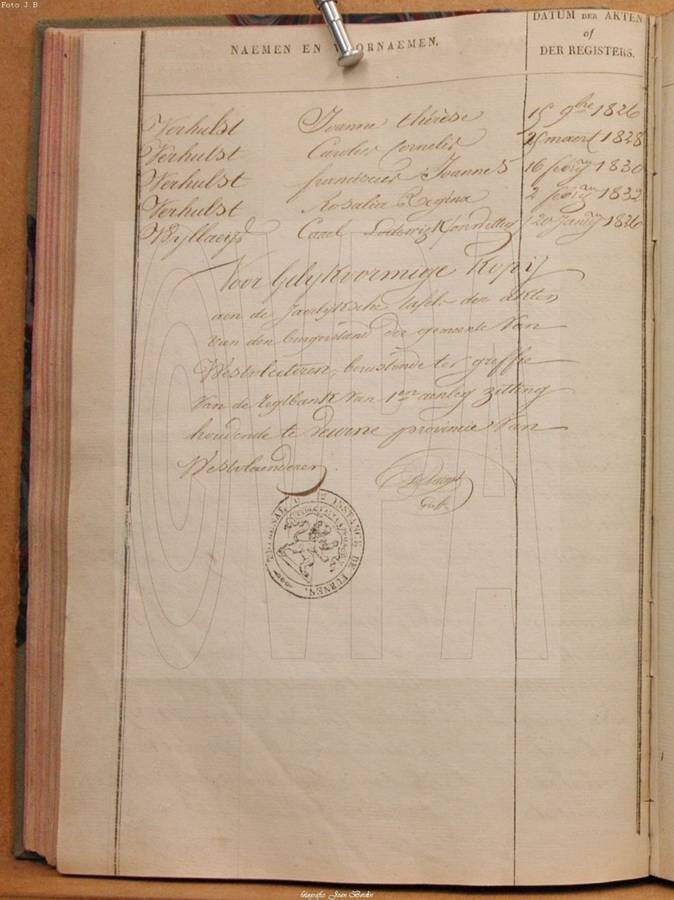 Foto J.B
NAEMEN EN VOORNAEMEN.
DATUM DER AKTEN
of
DER REGISTERS.
Verhulst Joanne thérèse 15 9bre 1826
Verhulst Carolus Cornelis 25 maert 1828
Verhulst franciscus Joannes 16 1830
Verhulst Rosalia Regina 2 1832
Wyllaeys Carel Lodewyk 20 1826
Voor Gelykvormige Kopij
aen de Jaerlyksche tafels der akten
van den burgerstand der gemeente Van
Westvleeteren, berustende ter greffie
Van de regtbank Van 1en aenleg zitting
houdende te Veurne provincie Van
Westvlaenderen
TRIBUNAL DE 1E INSTANCE DE FURNES.
CVFA